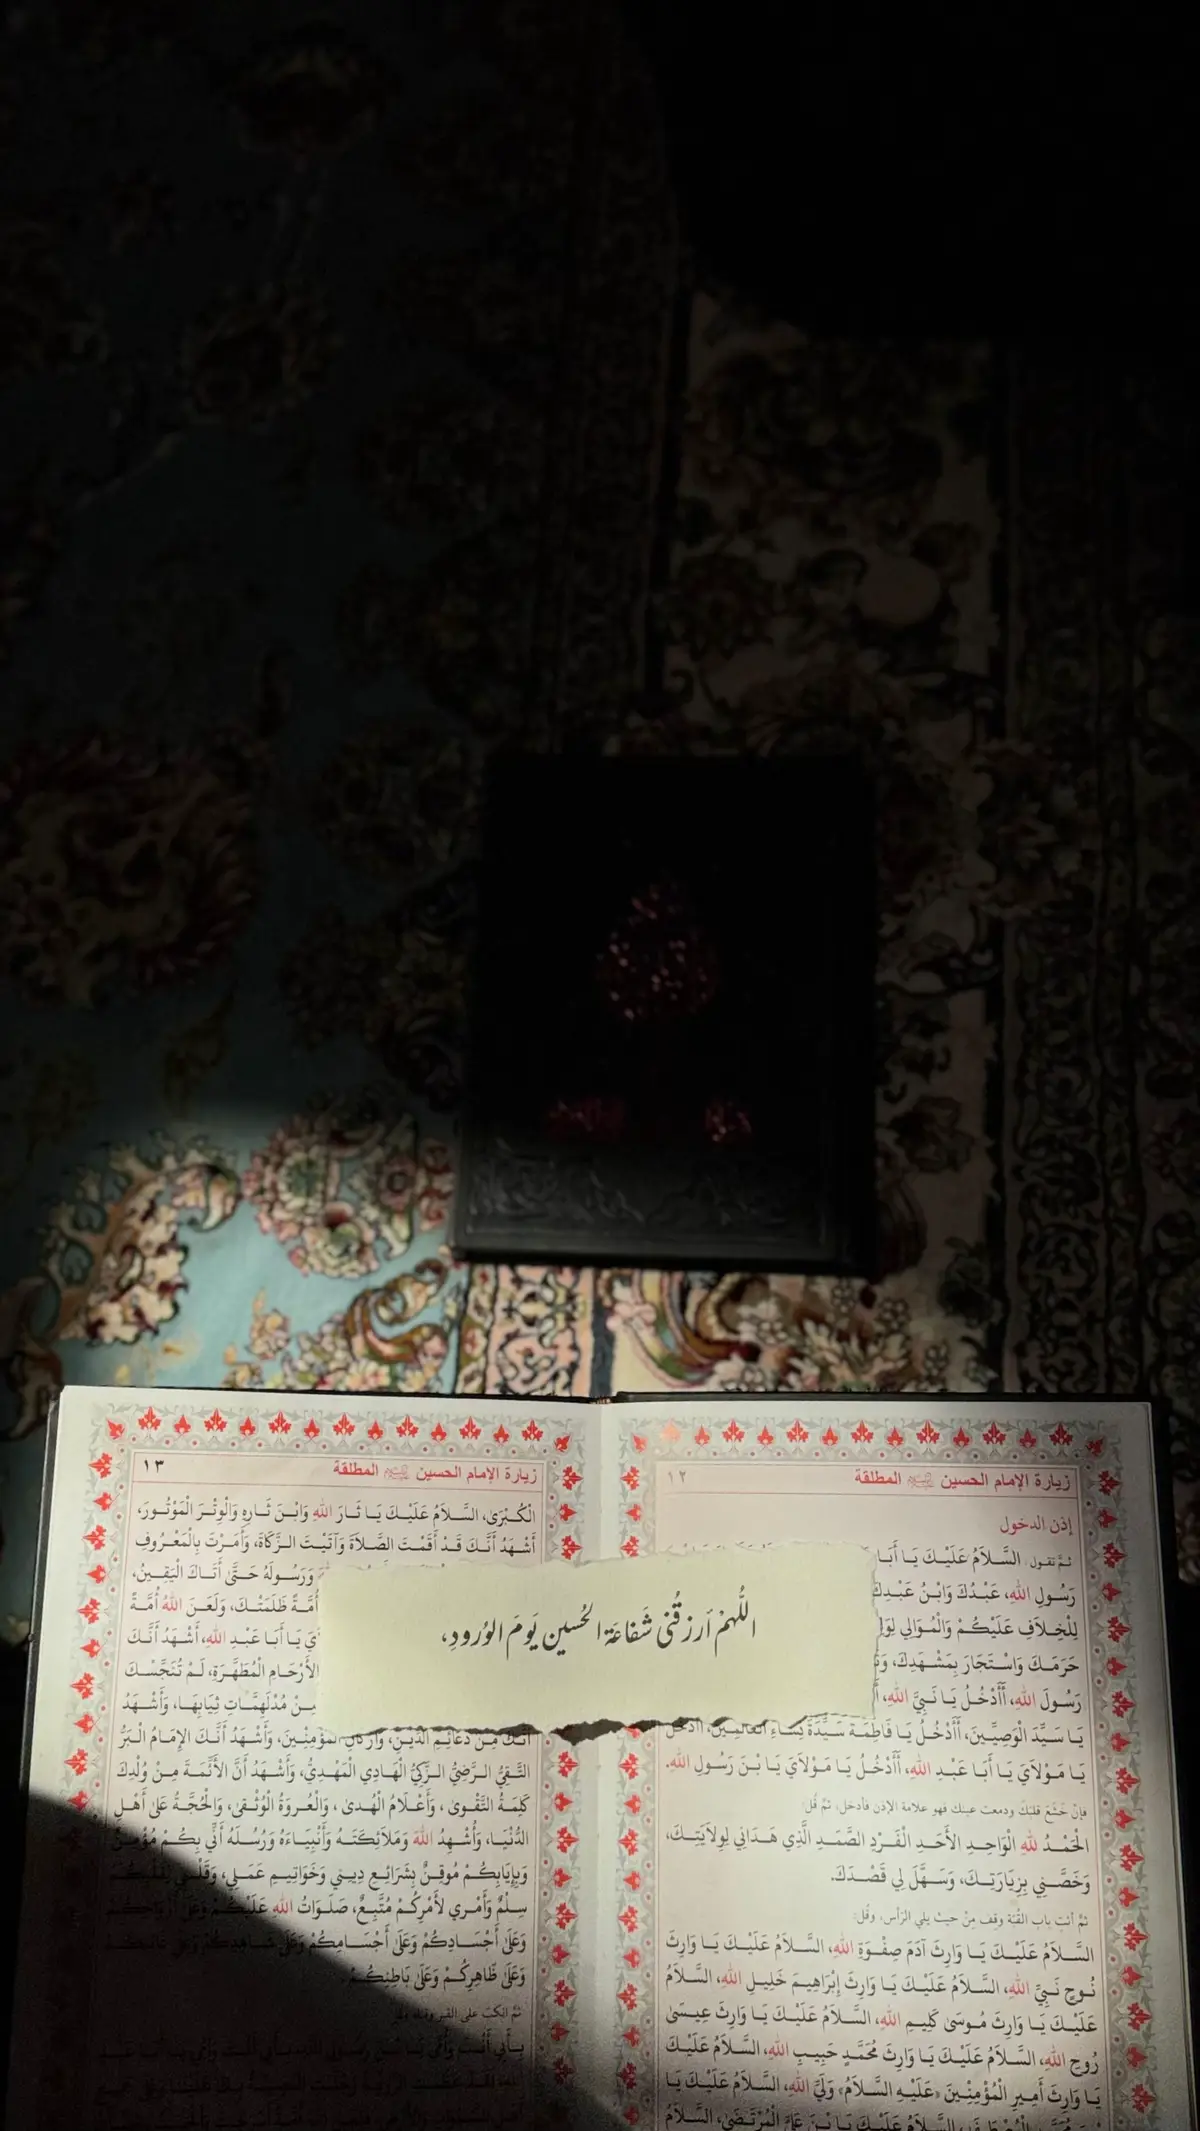 زيارة الإمام الحسين المطلقة ١٢
إذن الدخول
ثم تقول: السَّلَامُ عَلَيْكَ يَا أَبَا
رَسُولِ اللهِ، عَبْدُكَ وَابْنُ عَبْدِكَ
لِلْخِلَافِ عَلَيْكُمْ وَالْمُوَالِي
حَرَمَكَ وَاسْتَجَارَ بِمَشْهَدِكَ،
رَسُولَ اللهِ، أَأَدْخُلُ يَا نَبِيَّ اللهِ،
يَا سَيِّدَ الْوَصِيِّينَ، أَأَدْخُلُ يَا فَاطِمَةُ سَيِّدَةَ نِسَاءِ الْعَالَمِينَ، أَأَدْخُلُ
يَا مَوْلَايَ يَا أَبَا عَبْدِ اللهِ، أَأَدْخُلُ يَا مَوْلَايَ يَا بْنَ رَسُولِ اللهِ.
فإن خشع قلبك ودمعت عينك فهو علامة الإذن فادخل، ثم قل:
الْحَمْدُ لِلهِ الْوَاحِدِ الْأَحَدِ الْفَرْدِ الصَّمَدِ الَّذِي هَدَانِي لِوِلَايَتِكَ،
وَخَصَّنِي بِزِيَارَتِكَ، وَسَهَّلَ لِي قَصْدَكَ.
ثم ائت باب القبة وقف من حيث يلي الرأس، وقل:
السَّلَامُ عَلَيْكَ يَا وَارِثَ آدَمَ صِفْوَةِ اللهِ، السَّلَامُ عَلَيْكَ يَا وَارِثَ
نُوحٍ نَبِيِّ اللهِ، السَّلَامُ عَلَيْكَ يَا وَارِثَ إِبْرَاهِيمَ خَلِيلِ اللهِ، السَّلَامُ
عَلَيْكَ يَا وَارِثَ مُوسَىٰ كَلِيمِ اللهِ، السَّلَامُ عَلَيْكَ يَا وَارِثَ عِيسَىٰ
رُوحِ اللهِ، السَّلَامُ عَلَيْكَ يَا وَارِثَ مُحَمَّدٍ حَبِيبِ اللهِ، السَّلَامُ عَلَيْكَ
يَا وَارِثَ أَمِيرِ الْمُؤْمِنِينَ «عَلَيْهِ السَّلَامُ» وَلِيِّ اللهِ، السَّلَامُ عَلَيْكَ يَا
السَّلَامُ عَلَيْكَ يَا بْنَ عَلِيٍّ الْمُرْتَضَىٰ، السَّلَامُ
اللّٰهُمْ اَرزقُنی شَفاعَة الحُسین یَومَ الوُرودِ،
زيارة الإمام الحسين المطلقة ١٣
الْكُبْرَىٰ، السَّلَامُ عَلَيْكَ يَا ثَارَ اللهِ وَابْنَ ثَارِهِ وَالْوِتْرَ الْمَوْتُورَ،
أَشْهَدُ أَنَّكَ قَدْ أَقَمْتَ الصَّلَاةَ وَآتَيْتَ الزَّكَاةَ، وَأَمَرْتَ بِالْمَعْرُوفِ
وَرَسُولَهُ حَتَّىٰ أَتَاكَ الْيَقِينُ،
أُمَّةً ظَلَمَتْكَ، وَلَعَنَ اللهُ أُمَّةً
يَا أَبَا عَبْدِ اللهِ، أَشْهَدُ أَنَّكَ
الْأَرْحَامِ الْمُطَهَّرَةِ، لَمْ تُنَجِّسْكَ
مِنْ مُدْلَهِمَّاتِ ثِيَابِهَا، وَأَشْهَدُ
أَنَّكَ مِنْ دَعَائِمِ الدِّينِ، وَأَرْكَانِ الْمُؤْمِنِينَ، وَأَشْهَدُ أَنَّكَ الْإِمَامُ الْبَرُّ
التَّقِيُّ الرَّضِيُّ الزَّكِيُّ الْهَادِي الْمَهْدِيُّ، وَأَشْهَدُ أَنَّ الْأَئِمَّةَ مِنْ وُلْدِكَ
كَلِمَةُ التَّقْوَىٰ، وَأَعْلَامُ الْهُدَىٰ، وَالْعُرْوَةُ الْوُثْقَىٰ، وَالْحُجَّةُ عَلَىٰ أَهْلِ
الدُّنْيَا، وَأُشْهِدُ اللهَ وَمَلَائِكَتَهُ وَأَنْبِيَاءَهُ وَرُسُلَهُ أَنِّي بِكُمْ مُؤْمِنٌ
وَبِإِيَابِكُمْ مُوقِنٌ بِشَرَائِعِ دِينِي وَخَوَاتِيمِ عَمَلِي، وَقَلْبِي لِقَلْبِكُمْ
سِلْمٌ وَأَمْرِي لِأَمْرِكُمْ مُتَّبِعٌ، صَلَوَاتُ اللهِ عَلَيْكُمْ وَعَلَىٰ أَرْوَاحِكُمْ
وَعَلَىٰ أَجْسَادِكُمْ وَعَلَىٰ أَجْسَامِكُمْ وَعَلَىٰ شَاهِدِكُمْ وَعَلَىٰ غَائِبِكُمْ
وَعَلَىٰ ظَاهِرِكُمْ وَعَلَىٰ بَاطِنِكُمْ.
ثم انكب على القبر وقبله وقل: